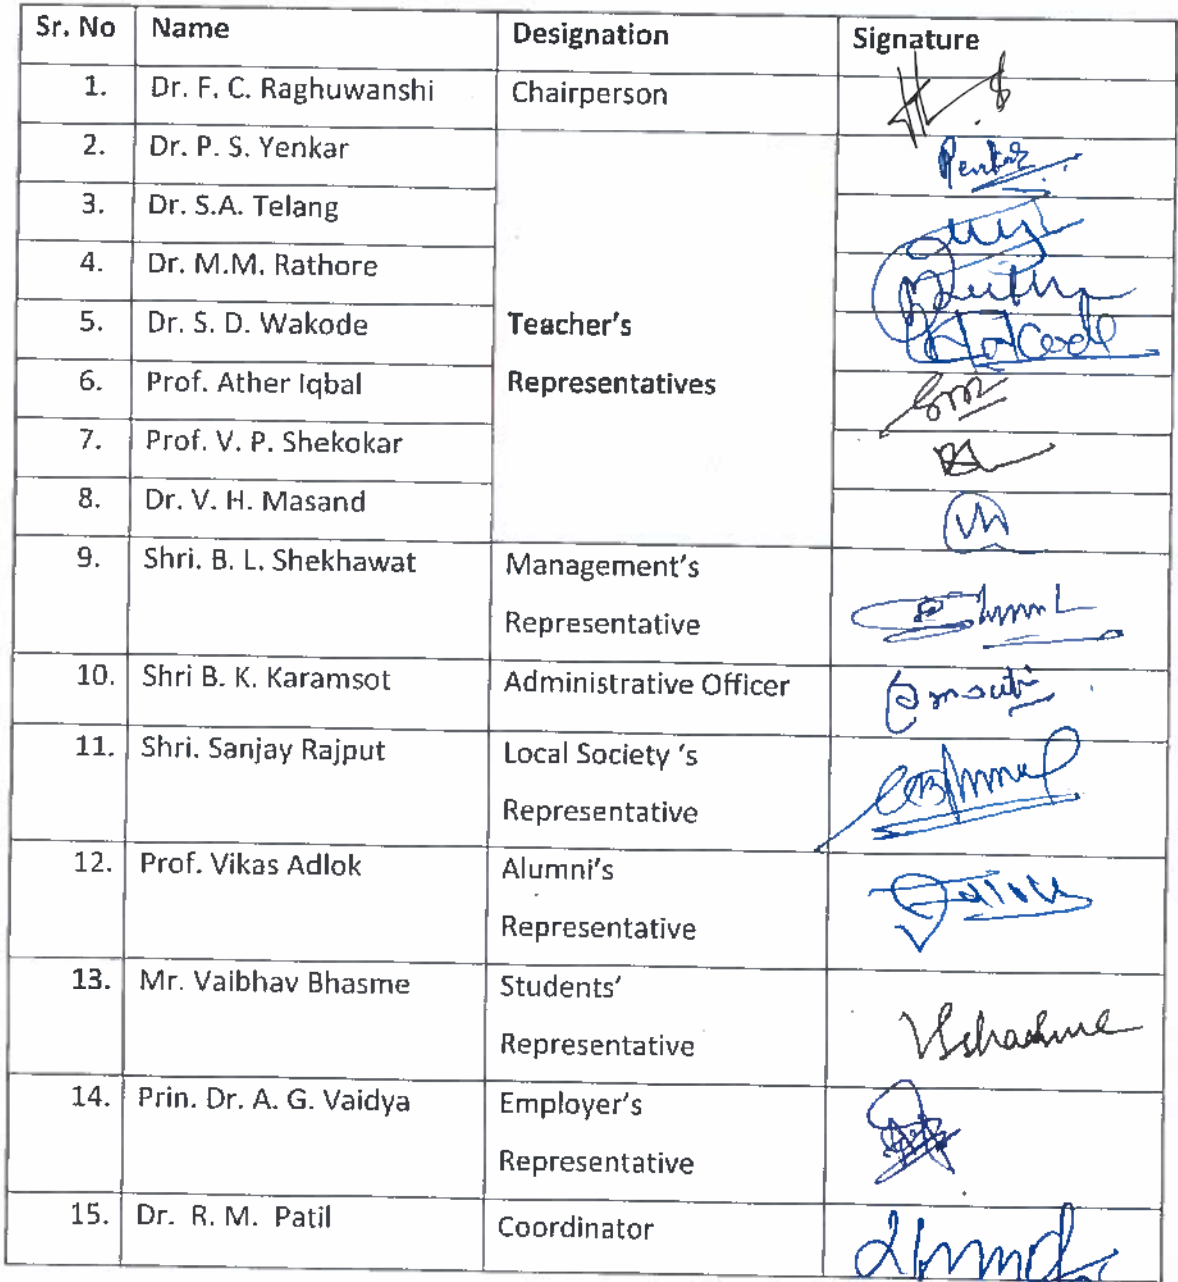 Sr. No Name Designation Signature
1. Dr. F. C. Raghuwanshi Chairperson
2. Dr. P. S. Yenkar
3. Dr. S.A. Telang
4. Dr. M.M. Rathore
5. Dr. S. D. Wakode Teacher's
6. Prof. Ather Iqbal Representatives
7. Prof. V. P. Shekokar
8. Dr. V. H. Masand
9. Shri. B. L. Shekhawat Management's
Representative
10. Shri B. K. Karamsot Administrative Officer
11. Shri. Sanjay Rajput Local Society 's
Representative
12. Prof. Vikas Adlok Alumni's
Representative
13. Mr. Vaibhav Bhasme Students'
Representative
14. Prin. Dr. A. G. Vaidya Employer's
Representative
15. Dr. R. M. Patil Coordinator